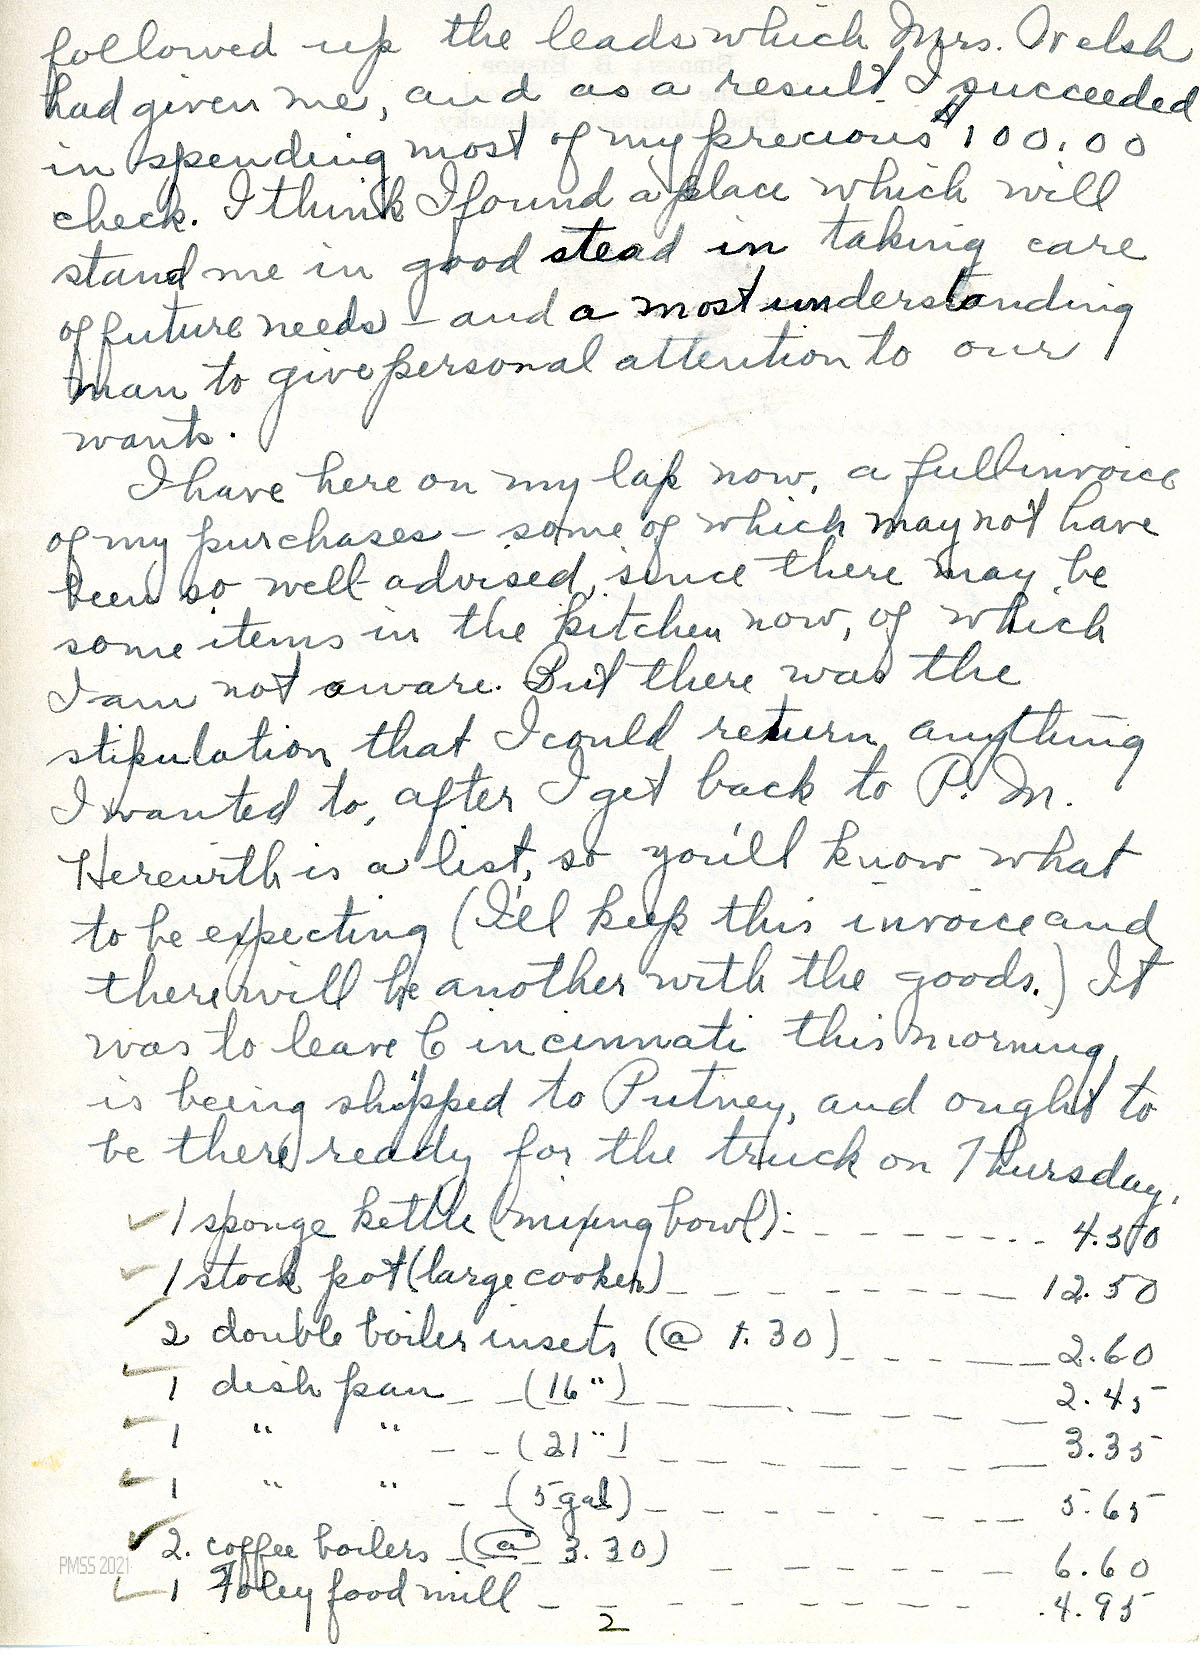 followed up the leads which Mrs. Welsh
had given me, and as a result I succeeded
in spending most of my precious $100.00
check. I think I found a place which will
stand me in good stead in taking care
of future needs - and a most understanding
man to give personal attention to our
wants.
I have here on my lap now, a full invoice
of my purchases - some of which may not have
been so well advised, since there may be
some items in the kitchen now, of which
I am not aware. But there was the
stipulation that I could return anything
I wanted to, after I get back to P. M.
Herewith is a list, so you'll know what
to be expecting (I'll keep this invoice and
there will be another with the goods.) It
was to leave Cincinnati this morning,
is being shipped to Putney, and ought to
be there ready for the truck on Thursday.
✓ 1 sponge kettle (mixing bowl):- - - - - - - - 4.50
✓ 1 stock pot (large cooker) - - - - - - - - 12.50
✓ 2 double boiler insets (@ 1.30) - - - - - - 2.60
✓ 1 dish pan - - (16") - - - - - - - - 2.45
✓ 1 " " - - (21") - - - - - - - - 3.35
✓ 1 " " - (5 gal) - - - - - - - - 5.65
✓ 2. coffee boilers - (@ 3.30) - - - - - - 6.60
✓ 1 Foley food mill - - - - - - - - 4.95
PMSS 2021
2